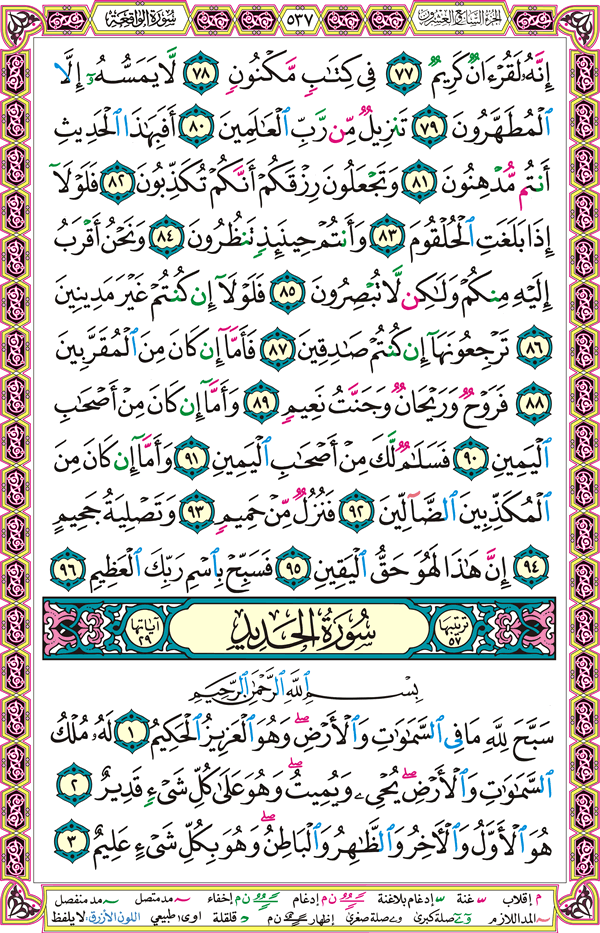 الجزء السابع والعشرون ٥٣٧ سورة الواقعة
إِنَّهُۥ لَقُرْءَانٌ كَرِيمٌ ٧٧ فِى كِتَٰبٍ مَّكْنُونٍ ٧٨ لَّا يَمَسُّهُۥٓ إِلَّا
ٱلْمُطَهَّرُونَ ٧٩ تَنزِيلٌ مِّن رَّبِّ ٱلْعَٰلَمِينَ ٨٠ أَفَبِهَٰذَا ٱلْحَدِيثِ
أَنتُم مُّدْهِنُونَ ٨١ وَتَجْعَلُونَ رِزْقَكُمْ أَنَّكُمْ تُكَذِّبُونَ ٨٢ فَلَوْلَآ
إِذَا بَلَغَتِ ٱلْحُلْقُومَ ٨٣ وَأَنتُمْ حِينَئِذٍ تَنظُرُونَ ٨٤ وَنَحْنُ أَقْرَبُ
إِلَيْهِ مِنكُمْ وَلَٰكِن لَّا تُبْصِرُونَ ٨٥ فَلَوْلَآ إِن كُنتُمْ غَيْرَ مَدِينِينَ
٨٦ تَرْجِعُونَهَآ إِن كُنتُمْ صَٰدِقِينَ ٨٧ فَأَمَّآ إِن كَانَ مِنَ ٱلْمُقَرَّبِينَ
٨٨ فَرَوْحٌ وَرَيْحَانٌ وَجَنَّتُ نَعِيمٍ ٨٩ وَأَمَّآ إِن كَانَ مِنْ أَصْحَٰبِ
ٱلْيَمِينِ ٩٠ فَسَلَٰمٌ لَّكَ مِنْ أَصْحَٰبِ ٱلْيَمِينِ ٩١ وَأَمَّآ إِن كَانَ مِنَ
ٱلْمُكَذِّبِينَ ٱلضَّآلِّينَ ٩٢ فَنُزُلٌ مِّنْ حَمِيمٍ ٩٣ وَتَصْلِيَةُ جَحِيمٍ
٩٤ إِنَّ هَٰذَا لَهُوَ حَقُّ ٱلْيَقِينِ ٩٥ فَسَبِّحْ بِٱسْمِ رَبِّكَ ٱلْعَظِيمِ ٩٦
ترتيبها ٥٧ سُورَةُ الحَدِيدِ آياتها ٢٩
بِسْمِ ٱللَّهِ ٱلرَّحْمَٰنِ ٱلرَّحِيمِ
سَبَّحَ لِلَّهِ مَا فِى ٱلسَّمَٰوَٰتِ وَٱلْأَرْضِ ۖ وَهُوَ ٱلْعَزِيزُ ٱلْحَكِيمُ ١ لَهُۥ مُلْكُ
ٱلسَّمَٰوَٰتِ وَٱلْأَرْضِ ۖ يُحْىِۦ وَيُمِيتُ ۖ وَهُوَ عَلَىٰ كُلِّ شَىْءٍ قَدِيرٌ ٢
هُوَ ٱلْأَوَّلُ وَٱلْءَاخِرُ وَٱلظَّٰهِرُ وَٱلْبَاطِنُ ۖ وَهُوَ بِكُلِّ شَىْءٍ عَلِيمٌ ٣
م إقلاب غنة إدغام بلاغنة ن م إدغام ن م إخفاء مد متصل مد منفصل
المد اللازم صلة كبرى صلة صغرى إظهار ن م قلقلة اوى طبيعي اللون الأزرق: لا يلفظ